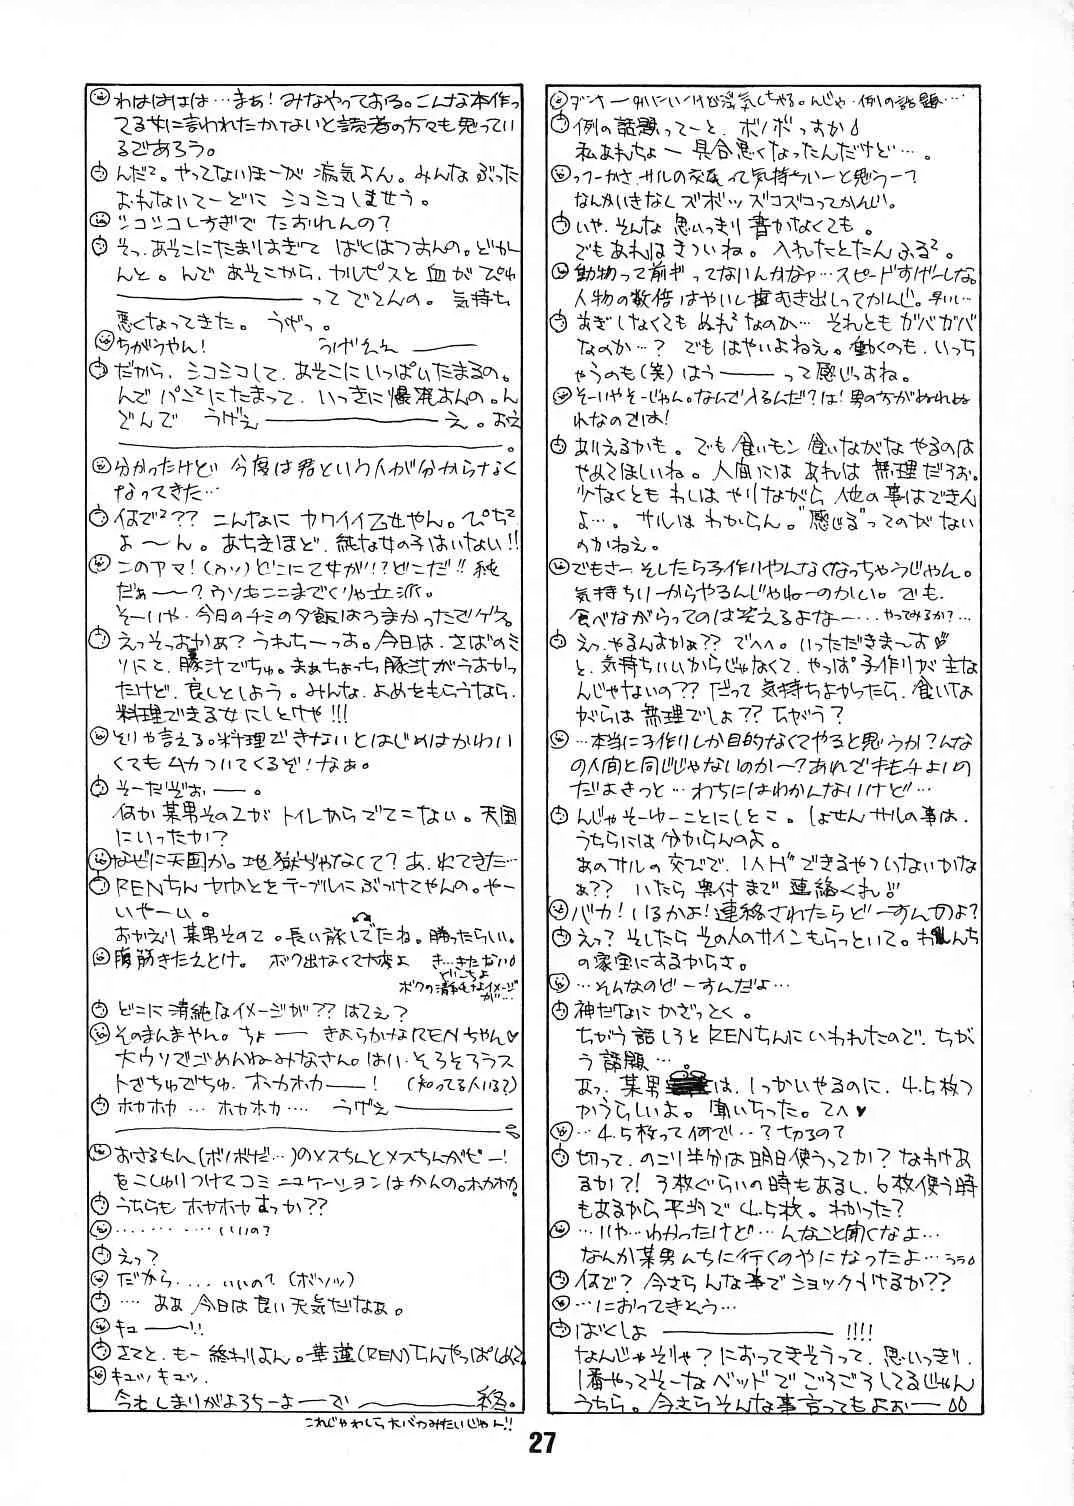 例の話題ってーと、ボノボっすか
私あれちょー具合悪くなったんだけど…。
ってーかさ、サルの交尾って気持ちいーと思うー？
なんかいきなしズボッズコズコってかんじ。
いや、そんな思いっきり書かなくても。
でもあれはきついね。入れたとたんふる²。
動物って前ギってないんかなァ…スピードすげーしな。
人物の数倍はやいし歯むき出しってかんじ。早い…
なのか…？ でもはやいよねえ。働くのも、いっち
ゃうのも(笑)はうーーーって感じっすね。
そーいやそーじゃん。なんで入るんだ？は！男の方がぬれぬ
れなのでは！
ありえるかも。でも食いモン食いながなやるのは
やめてほしいね。人間にはあれは無理だろお。
少なくともわしはやりながら他の事はできん
よ…。サルはわからん。"感じる"ってのがない
のかねえ。
でもさー、そしたら子作りやんなくなっちゃうじゃん。
気持ちいーからやるんじゃねーのかい。でも、
食べながらってのは笑えるよなー…やってみるか？…
えっ、やるんすかぁ？？ でへへ。いっただきま〜す
と、気持ちいいからじゃなくて、やっぱ子作りが主な
んじゃないの？？だって気持ちよかったら、食いな
がらは無理でしょ？？ちがう？
…本当に子作りしか目的なくてやると思うか？んな
の人間と同じじゃないのか〜？あれでキモチよいの
だよきっと…わちにはわかんないけど…
んじゃそーゆーことにしとこ。しょせんサルの事は、
うちらには分からんのよ。
あのサルの交ビで、1人Hできるやついないかな
ぁ？？ いたら奥付まで連絡くれ!!
バカ！いるかよ！連絡されたらどーすんのよ？
えっ？そしたらその人のサインもらっといて。わしんち
の家宝にするからさ。
…そんなのどーすんだよ…
神だなにかざっとく。
ちがう話しろとRENちんにいわれたので、ちが
う話題…
あっ、某男は、1っかいやるのに、4.5枚つ
かうらしいよ。聞いちった。てへ♥
…4.5枚って何で…？切るの？
切って、のこり半分は明日使うってか？なわけあ
るか？！3枚ぐらいの時もあるし、6枚使う時
もあるから平均で4.5枚。わかった？
…いや…わかったけど…んなこと聞くなよ…
なんか某男んちに行くのやになったよ…うぅ。
何で？今さらんな事でショックうけるか？？
…におってきそう…
ばくしょーーー!!!!
なんじゃそりゃ？におってきそうって、思いっきり、
1番やってそーなベッドでごろごろしてるじゃん
うちら。今さらそんな事言ってもよおー
わはははは…まぁ！みなやっておる。こんな本作っ
てる女に言われたかけないと読者の方々も思ってい
るであろう。
んだ²。やってないほーが病気よん。みんなぶった
おれないてーどにシコシコしませう。
シコシコしすぎでたおれんの？
そっ、あそこにたまりすぎてばくはつすんの。どか
んと。んであそこから、カルピスと血がぴゅ
ーーーーってでてんの。気持ち
悪くなってきた。うげっ。
ちがうやん！ うげええーー
だから、シコシコして、あそこにいっぱいたまるの。
んでパン²にたまって、いっきに爆発すんの。ん
どんでうげえーーーえ。おえ
ーーーーー。
分かったけど今度は君という人が分からなく
なってきた…
何で²？？ こんなにカワイイ乙女やん。ぴち²
よ〜ん。あちきほど、純な女の子はいない!!
このアマ！(ウソ)どこに乙女が!？どこだ!!純
だぁ〜？ウソもここまでくりゃ立派。
そーいや、今日のチミの夕飯はうまかったでゲス。
えっそっすかぁ？うれちーっす。今日は、さばのミ
ソにと、豚汁でちゅ。まぁちょっち豚汁がうすかっ
たけど、良しとしよう。みんな、よめをもらうなら、
料理できる女にしとけや!!!
そりゃ言える。料理できないとはじめはかわい
くてもムカついてくるぞ！なぁ。
そーだぞぉー。
何か某男その2がトイレからでてこない。天国
にいったか？
なぜに天国か。地獄ぢゃなくて？あ、れてきた…
RENちんヤカンとをテーブルにぶつけてやんの。やー
いやーい。
おかえり某男その2。長い旅してたね。勝ったらしい。
腹筋きたえとけ。 ボク出なくて大変よ き…きたない
どこちよ
ボクの清純なイメージ
が…
どこに清純なイメージが？？はてぇ？
そのまんまやん。ちょーーきよらかなRENちゃん♥
大ウソでごめんねみなさん。はい、そろそろラス
トでちゅでちゅ、ホカホカーー！ (知ってる人いる？)
ホカホカ…ホカホカ… うげえーーー
おさるちん(ボノボだ…)のメスちんとメスちんがピー！
をこしゅりつけてコミュニケーションはかんの。ホカホカ
うちらもホカホカすっか？？
………… いいの？
えっ？
だから…… いいの？(ボソッ)
… ああ今日は良い天気だなぁ。
キューー!!
さてと、もー終わりよん。華蓮(REN)ちんやっぱしめて
キュッキュッ。
今もしまりがよろちーよーーでーーー終。
これじゃわしら大バカみたいじゃん!!
27